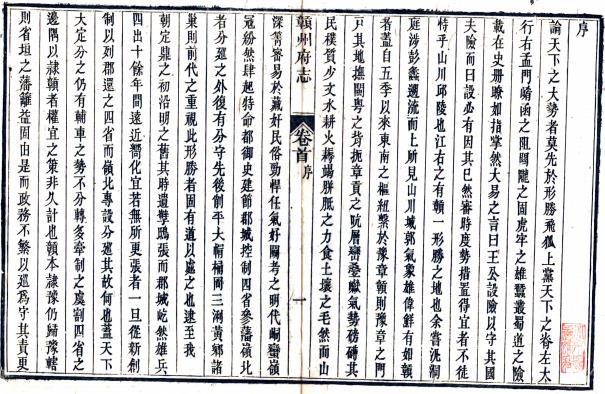 序
論天下之大勢者莫先於形勝飛狐上黨天下之脊左太
行右孟門崤函之阻關隴之固虎牢之雄蠶叢蜀道之險
載在史册瞭如指掌然大易之言曰王公設險以守其國
夫險而曰設必有因其已然審時度勢措置得宜者不徒
恃乎山川邱陵也江右之有贛一形勝之地也余嘗沇洞
庭涉彭蠡遡流而上所見山川城郭氣象雄偉鮮有如贛
者蓋自五季以來東南之樞紐繫於豫章贛則豫章之門
戸其地撫閩粤之背扼章貢之吭層巒壑巘氣勢磅礴其
民樸質少文水耕火耨蹋胼胝之力食土壤之毛然而山
贛州府志
卷首 序
一
深菁密易於藏奸民俗勁悍任氣好鬬考之明代峒蠻嶺
冦紛然肆起特命都御史建節郡城控制四省參藩嶺北
者分廵之外復有分守先後創平大帽桶岡三浰黄鄉諸
巢則前代之重視此形勝者固有道以處之也逮至我
朝定鼎之初沿明之舊其時遺孼鴟張而郡城屹然雄兵
四出十餘年間遠近嚮化宜若無所更張者一旦從新創
制以列郡還之四省而嶺北專設分廵其故何也蓋天下
大定分之仍有輔車之勢不分轉多牽制之虞割四省之
邊隅以隷贛者權宜之策非久計也贛本隷豫仍歸豫轄
則省垣之藩籬益固由是而政務不繁以廵爲守其責更